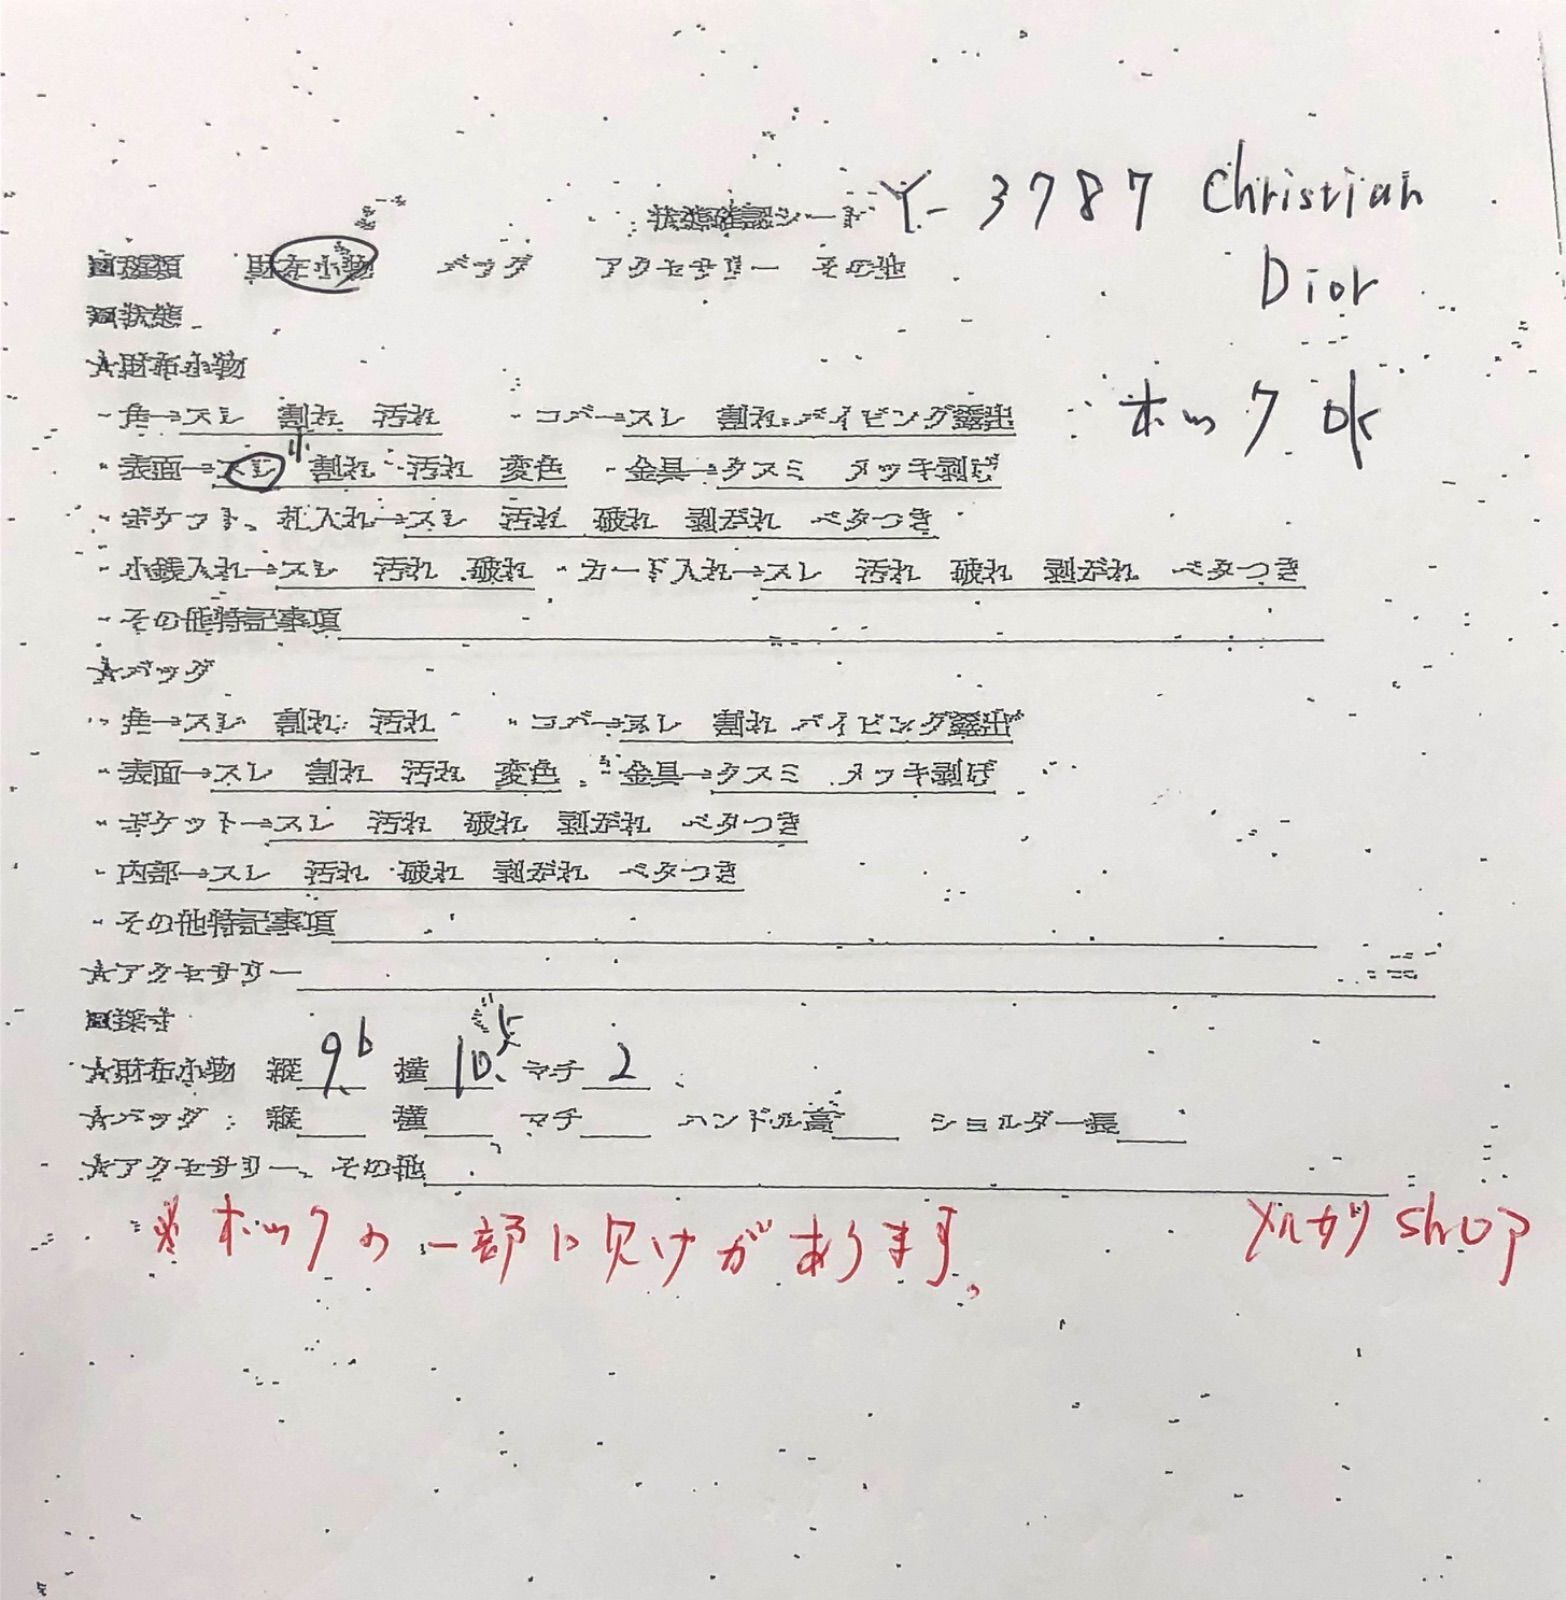 状態確認シート Y-3787 Christian
Dior
■種類 財布小物 バッグ アクセサリー その他
■状態
★財布小物
・角→スレ 割れ 汚れ ・コバ→スレ 割れ パイピング露出
ホック ok
小
・表面→スレ 割れ 汚れ 変色 ・金具→クスミ メッキ剥げ
・ポケット、札入れ→スレ 汚れ 破れ 剥がれ ベタつき
・小銭入れ→スレ 汚れ 破れ ・カード入れ→スレ 汚れ 破れ 剥がれ ベタつき
・その他特記事項
★バッグ
・角→スレ 割れ 汚れ ・コバ→スレ 割れ パイピング露出
・表面→スレ 割れ 汚れ 変色 ・金具→クスミ メッキ剥げ
・ポケット→スレ 汚れ 破れ 剥がれ ベタつき
・内部→スレ 汚れ 破れ 剥がれ ベタつき
・その他特記事項
★アクセサリー
■採寸
★財布小物 縦 横 10.5 マチ 2
★バッグ 縦 横 マチ ハンドル高 ショルダー長
★アクセサリー、その他
※ホックの一部に欠けがあります。 メルカリ Shop